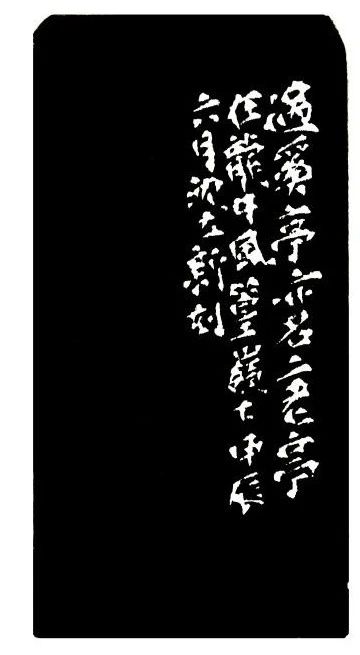 過溪亭亦名二老亭
在龍井風篁嶺下甲辰
六月沈左新刻